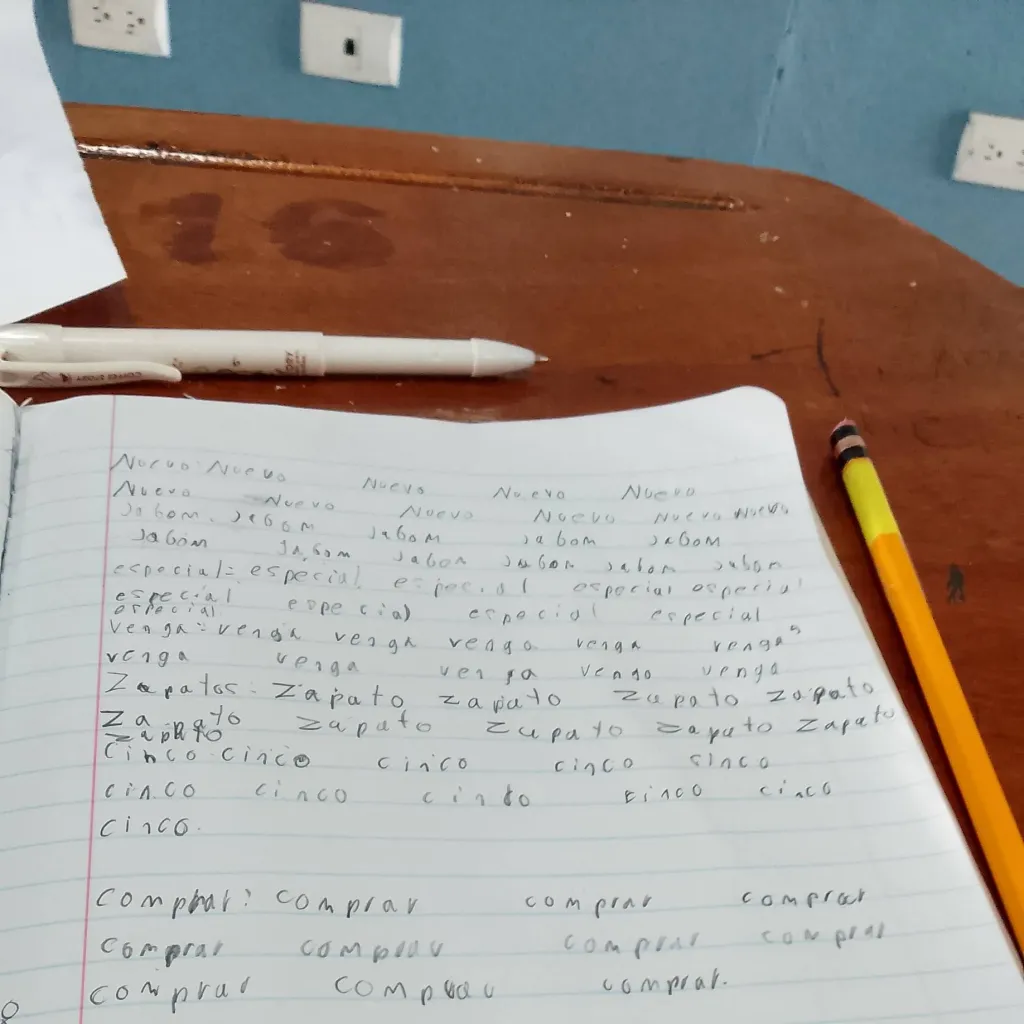 16
Nuevo: Nuevo Nuevo Nuevo Nuevo
Nuevo Nuevo Nuevo Nuevo Nuevo Nuevo
Jabom. Jabom Jabom Jabom Jabom
Jabom Jabom Jabon Jabon Jabon Jabon
especial= especial especial especial especial
especial especial especial especial
especial
venga= venga venga venga venga venga
venga venga venga venga venga
Zapatos: Zapato zapato zapato zapato
Zapato zapato zapato zapato zapato
zapato
Cinco: cinco cinco cinco sinco
cinco cinco cinco cinco cinco
cinco.
comprar: comprar comprar comprar
comprar comprar comprar comprar
comprar comprar comprar.